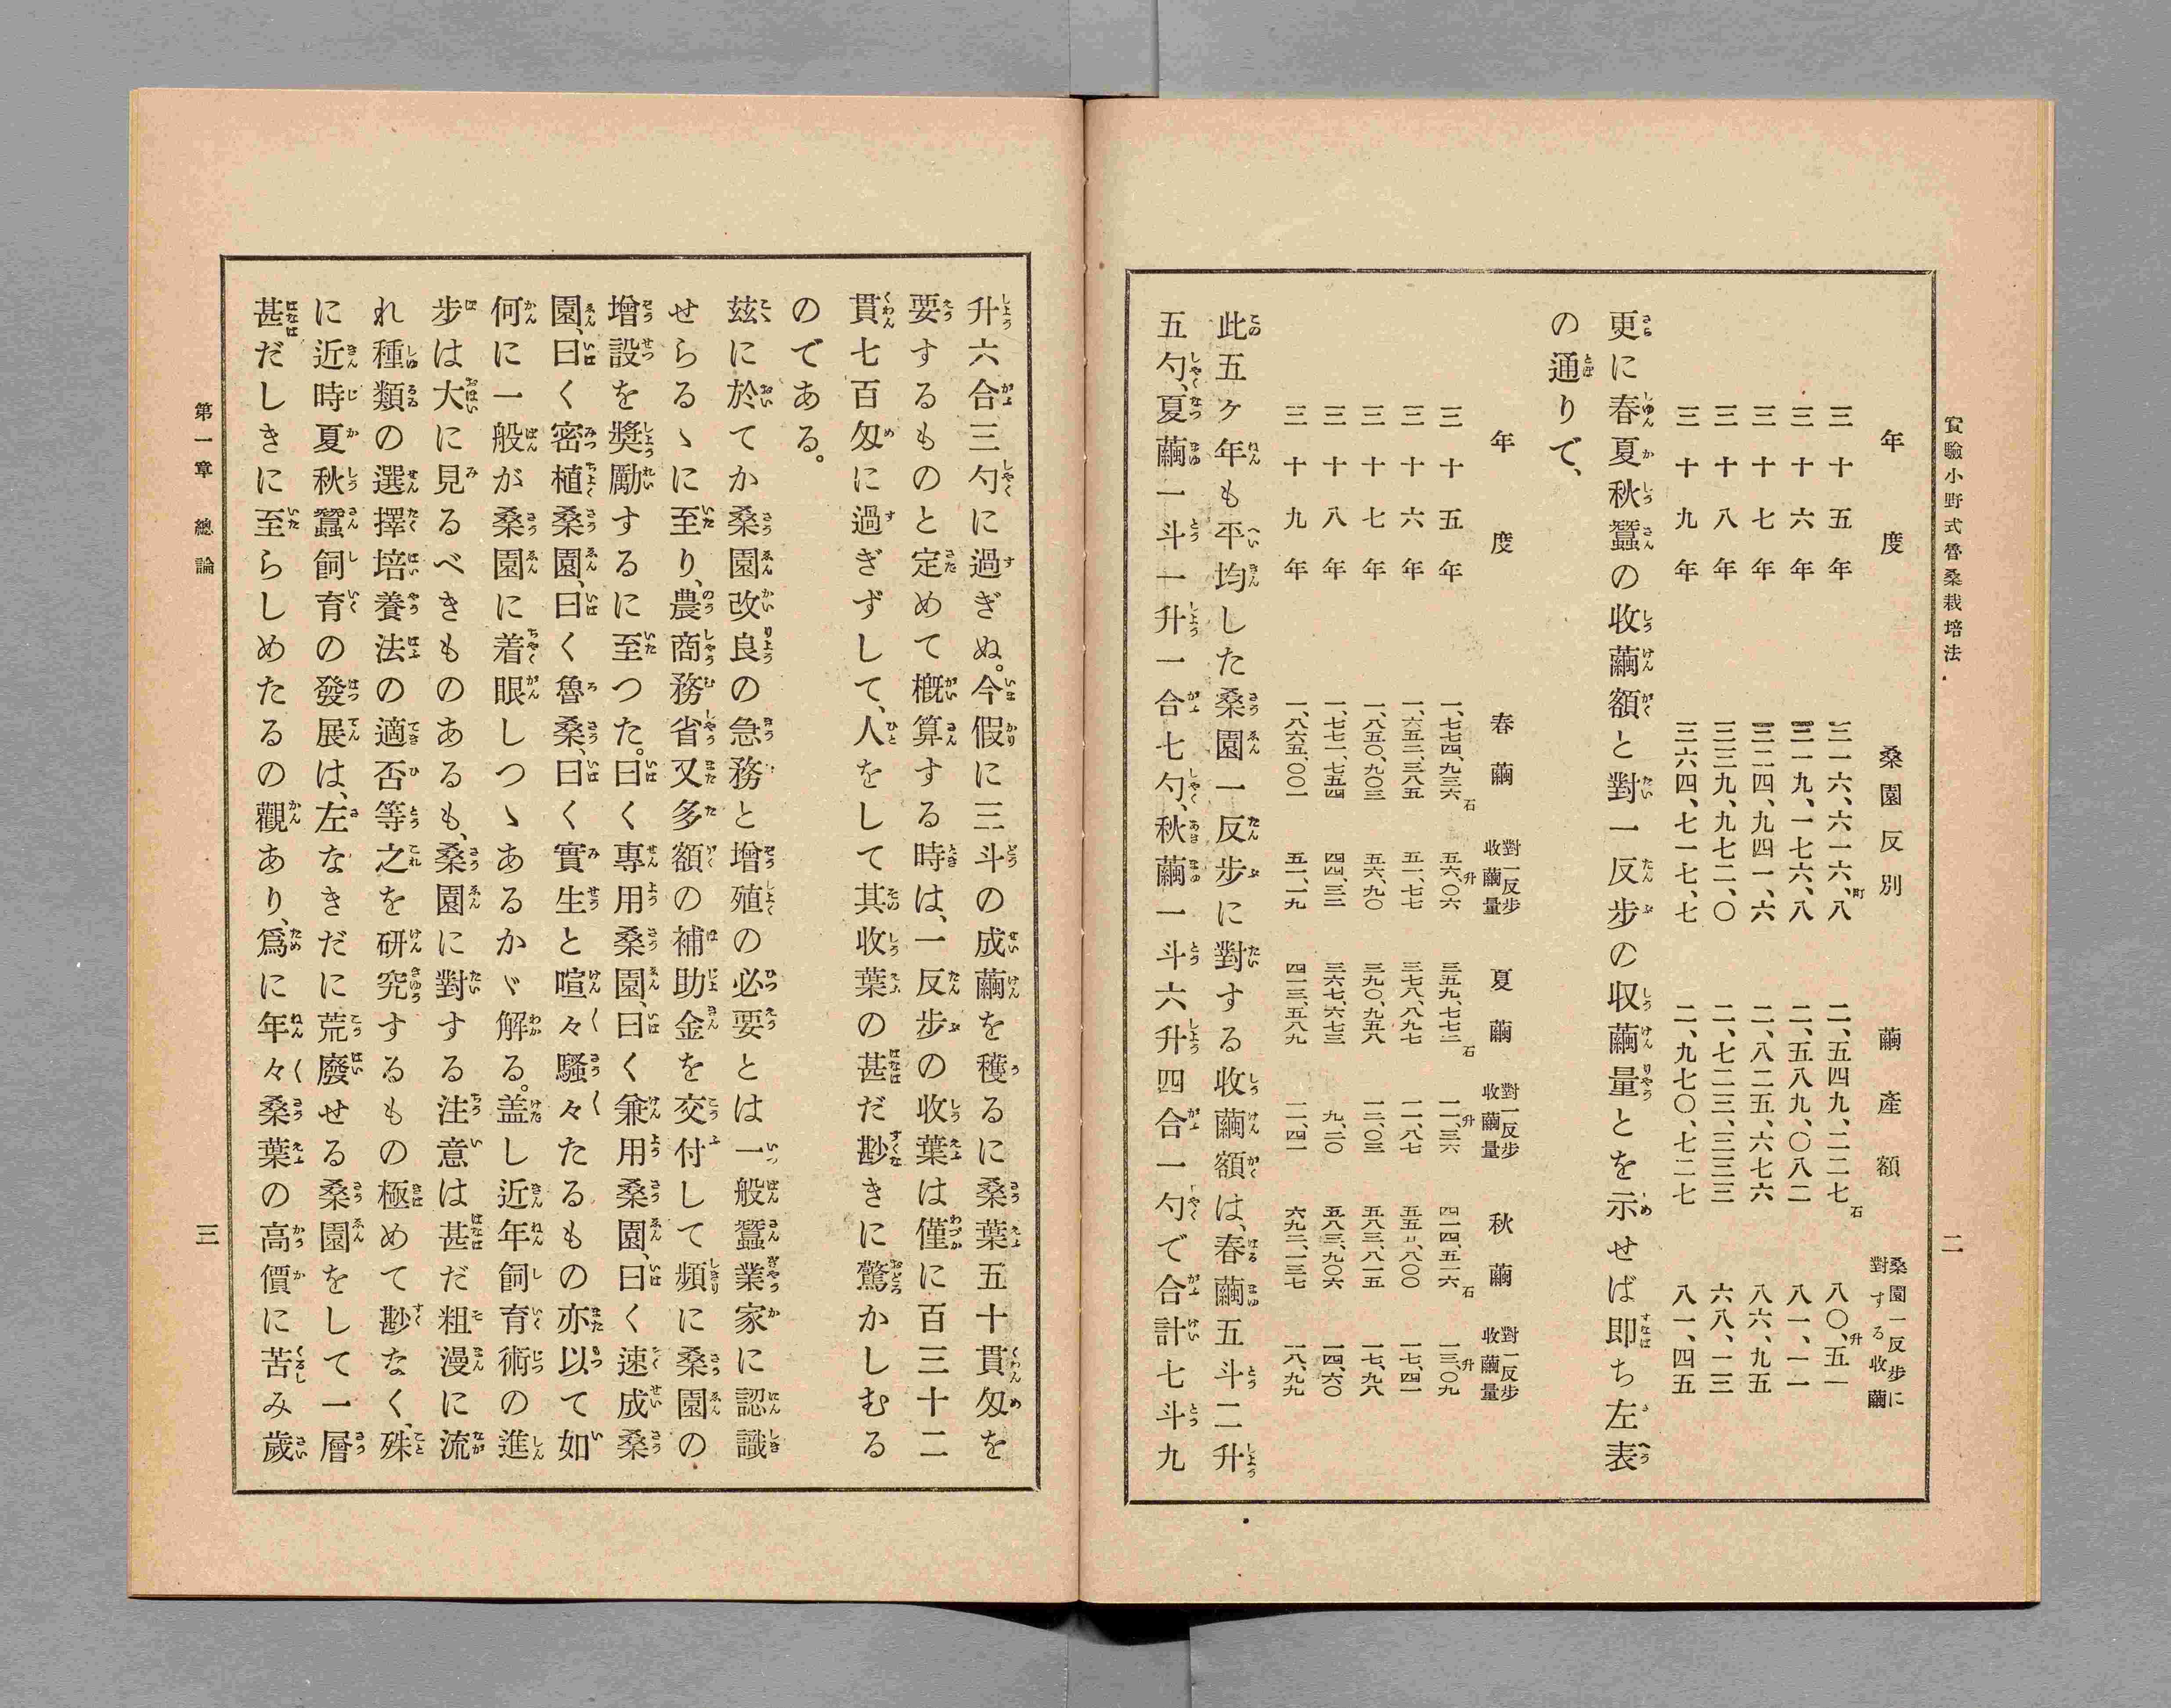 實驗小野式魯桑栽培法
二
年度 桑園反別 繭產額 桑園一反步に對する收繭
三十五年 三一六、六一六、八町 二、五四九、二二七石 八〇、五一升
三十六年 三一九、一七六、八 二、五八九、〇八二 八一、一一
三十七年 三二四、九四一、六 二、八二五、六七六 八六、九五
三十八年 三三九、九七二、〇 二、七二三、三三三 六八、一三
三十九年 三六四、七一七、七 二、九七〇、七二七 八一、四五
更に春夏秋蠶の收繭額と對一反步の収繭量とを示せば即ち左表
の通りで、
年度 春繭 對一反步收繭量 夏繭 對一反步收繭量 秋繭 對一反步收繭量
三十五年 一、七七四、九三六石 五六、〇六升 三五九、七七二石 一一、三六升 四一四、五一六石 一三、〇九升
三十六年 一、六五二、三八五 五一、七七 三七八、八九七 一一、八七 五五 、八〇〇 一七、四一
三十七年 一、八五〇、九〇三 五六、九〇 三九〇、九五八 一二、〇三 五八三、八一五 一七、九八
三十八年 一、七七一、七五四 四四、三三 三六七、六七三 九、二〇 五八三、九〇六 一四、六〇
三十九年 一、八六五、〇〇一 五一、一九 四一三、五八九 一一、四一 六九二、一三七 一八、九九
此五ヶ年も平均した桑園一反步に對する收繭額は、春繭五斗二升
五勺、夏繭一斗一升一合七勺、秋繭一斗六升四合一勺で合計七斗九
升六合三勺に過ぎぬ。今假に三斗の成繭を穫るに桑葉五十貫匁を
要するものと定めて概算する時は、一反步の收葉は僅に百三十二
貫七百匁に過ぎずして、人をして其收葉の甚だ尠きに驚かしむる
のである。
茲に於てか桑園改良の急務と增殖の必要とは一般蠶業家に認識
せらるゝに至り、農商務省又多額の補助金を交付して頻に桑園の
增設を奬勵するに至つた。曰く專用桑園、曰く兼用桑園、曰く速成桑
園、曰く密植桑園、曰く魯桑、曰く實生と喧々騷々たるもの亦以て如
何に一般が桑園に着眼しつゝあるかゞ解る。盖し近年飼育術の進
步は大に見るべきものあるも、桑園に對する注意は甚だ粗漫に流
れ種類の選擇培養法の適否等之を研究するもの極めて尠なく、殊
に近時夏秋蠶飼育の發展は、左なきだに荒廢せる桑園をして一層
甚だしきに至らしめたるの觀あり、爲に年々桑葉の高價に苦み歲
第一章 總論
三